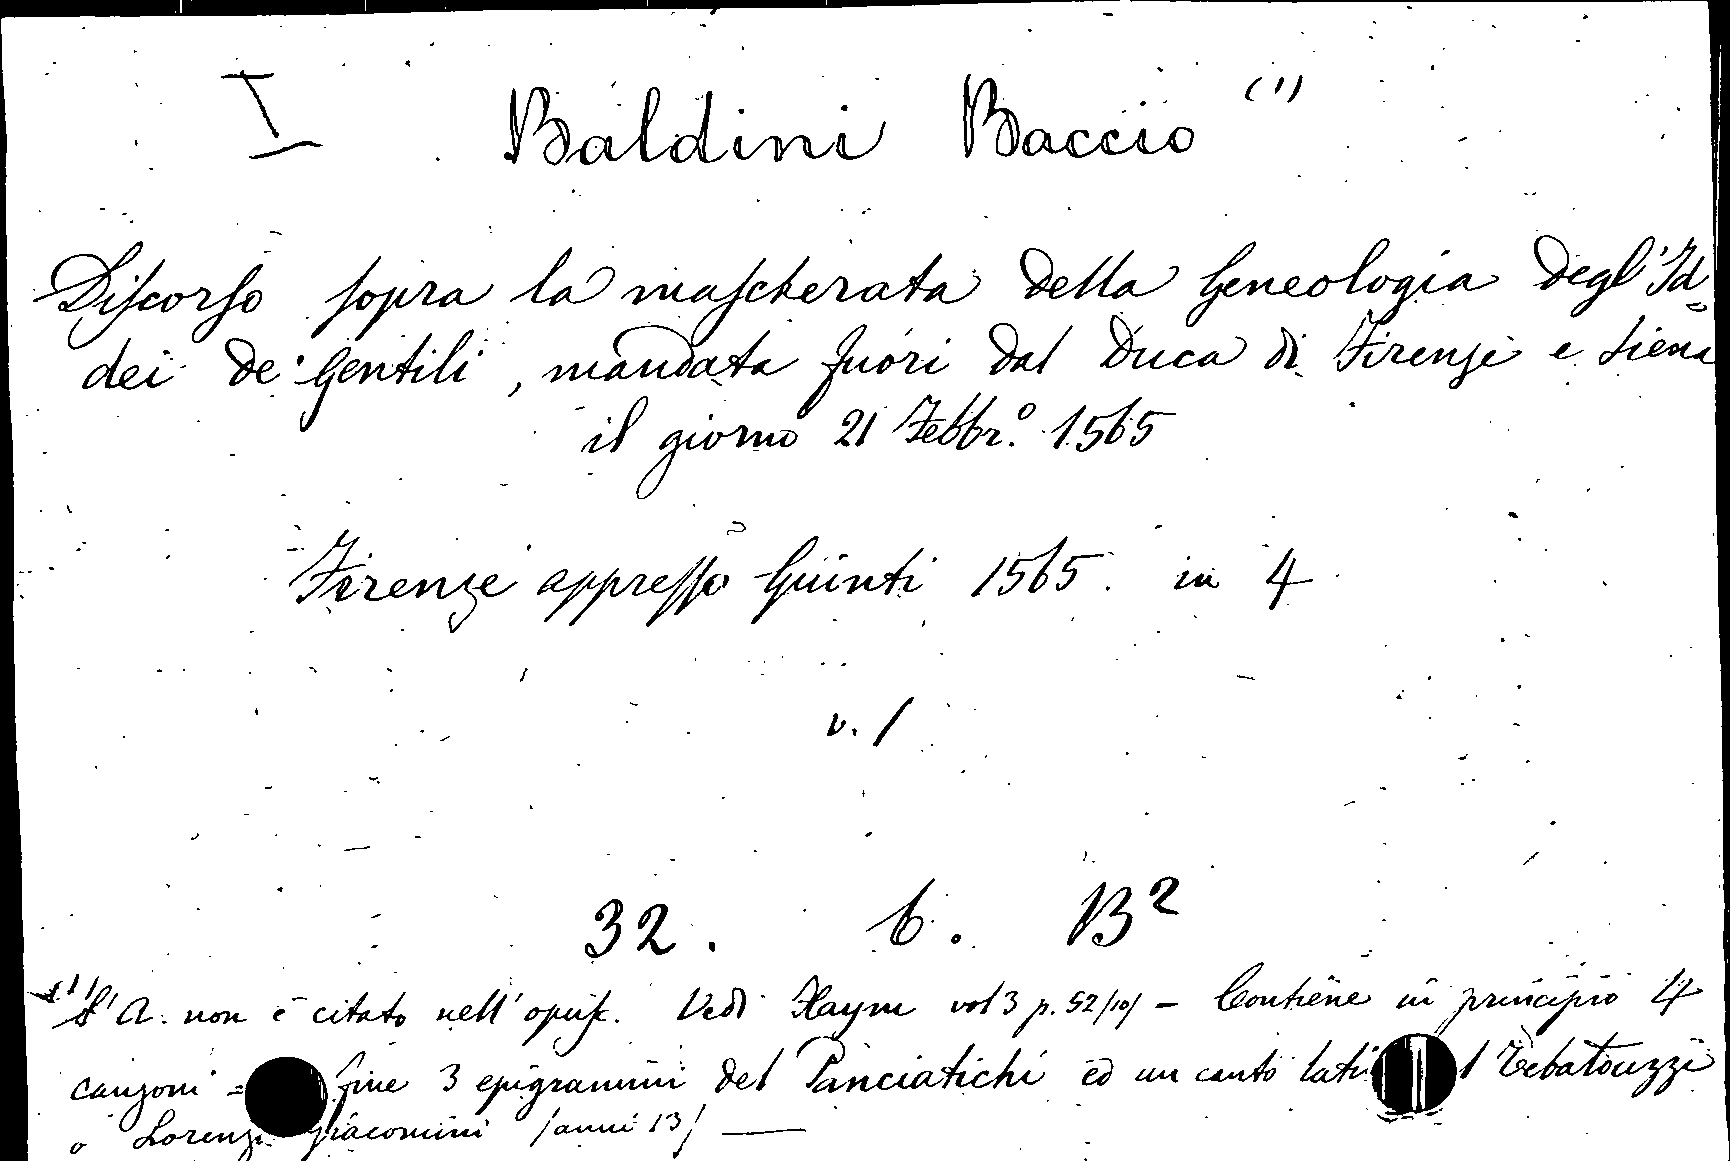 I Baldini Baccio (1)
Discorso sopra la mascherata della Geneologia degl'Id=
dei de' Gentili, mandata fuori dal Duca di Firenze e Siena
il giorno 21 Febbr.º 1565
Firenze appresso Giunti 1565. in 4
v. /
32. 6. B²
(1) L'A. non è citato nell'opusc. Vedi Haym vol 3 p. 52/10/ - Contiene in principio 4
canzoni = fine 3 epigrammi del Panciatichi ed un canto lati l Tebalducci
o Lorenzo Giacomini /anni 13/ —